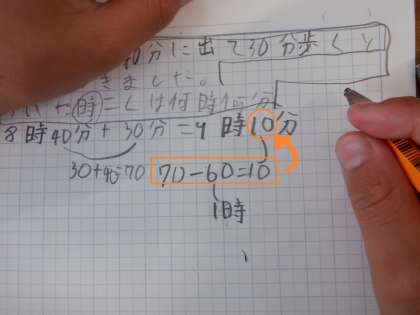 40分に出て30分歩くと
きました。
時こくは何時何分
8時40分+30分=9時10分
30+40=70 70-60=10
1時